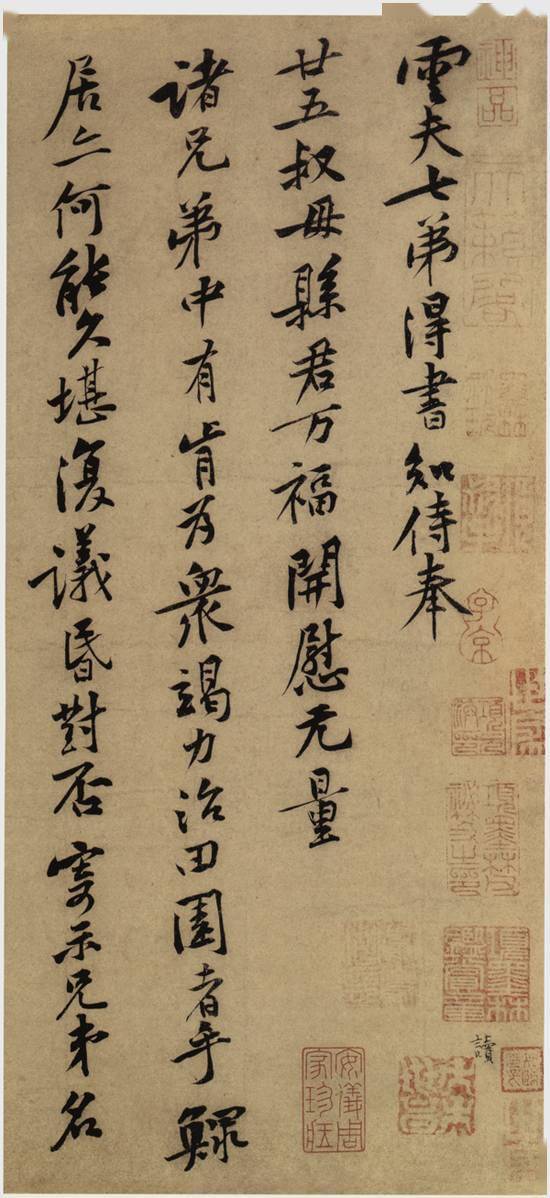 雲夫七弟得書知侍奉
廿五叔母縣君万福開慰无量
諸兄弟中有肯為衆竭力治田園者乎鰥
居亦何能久堪復議昏對否寄示兄弟名
讀
神品
安儀周家珍藏